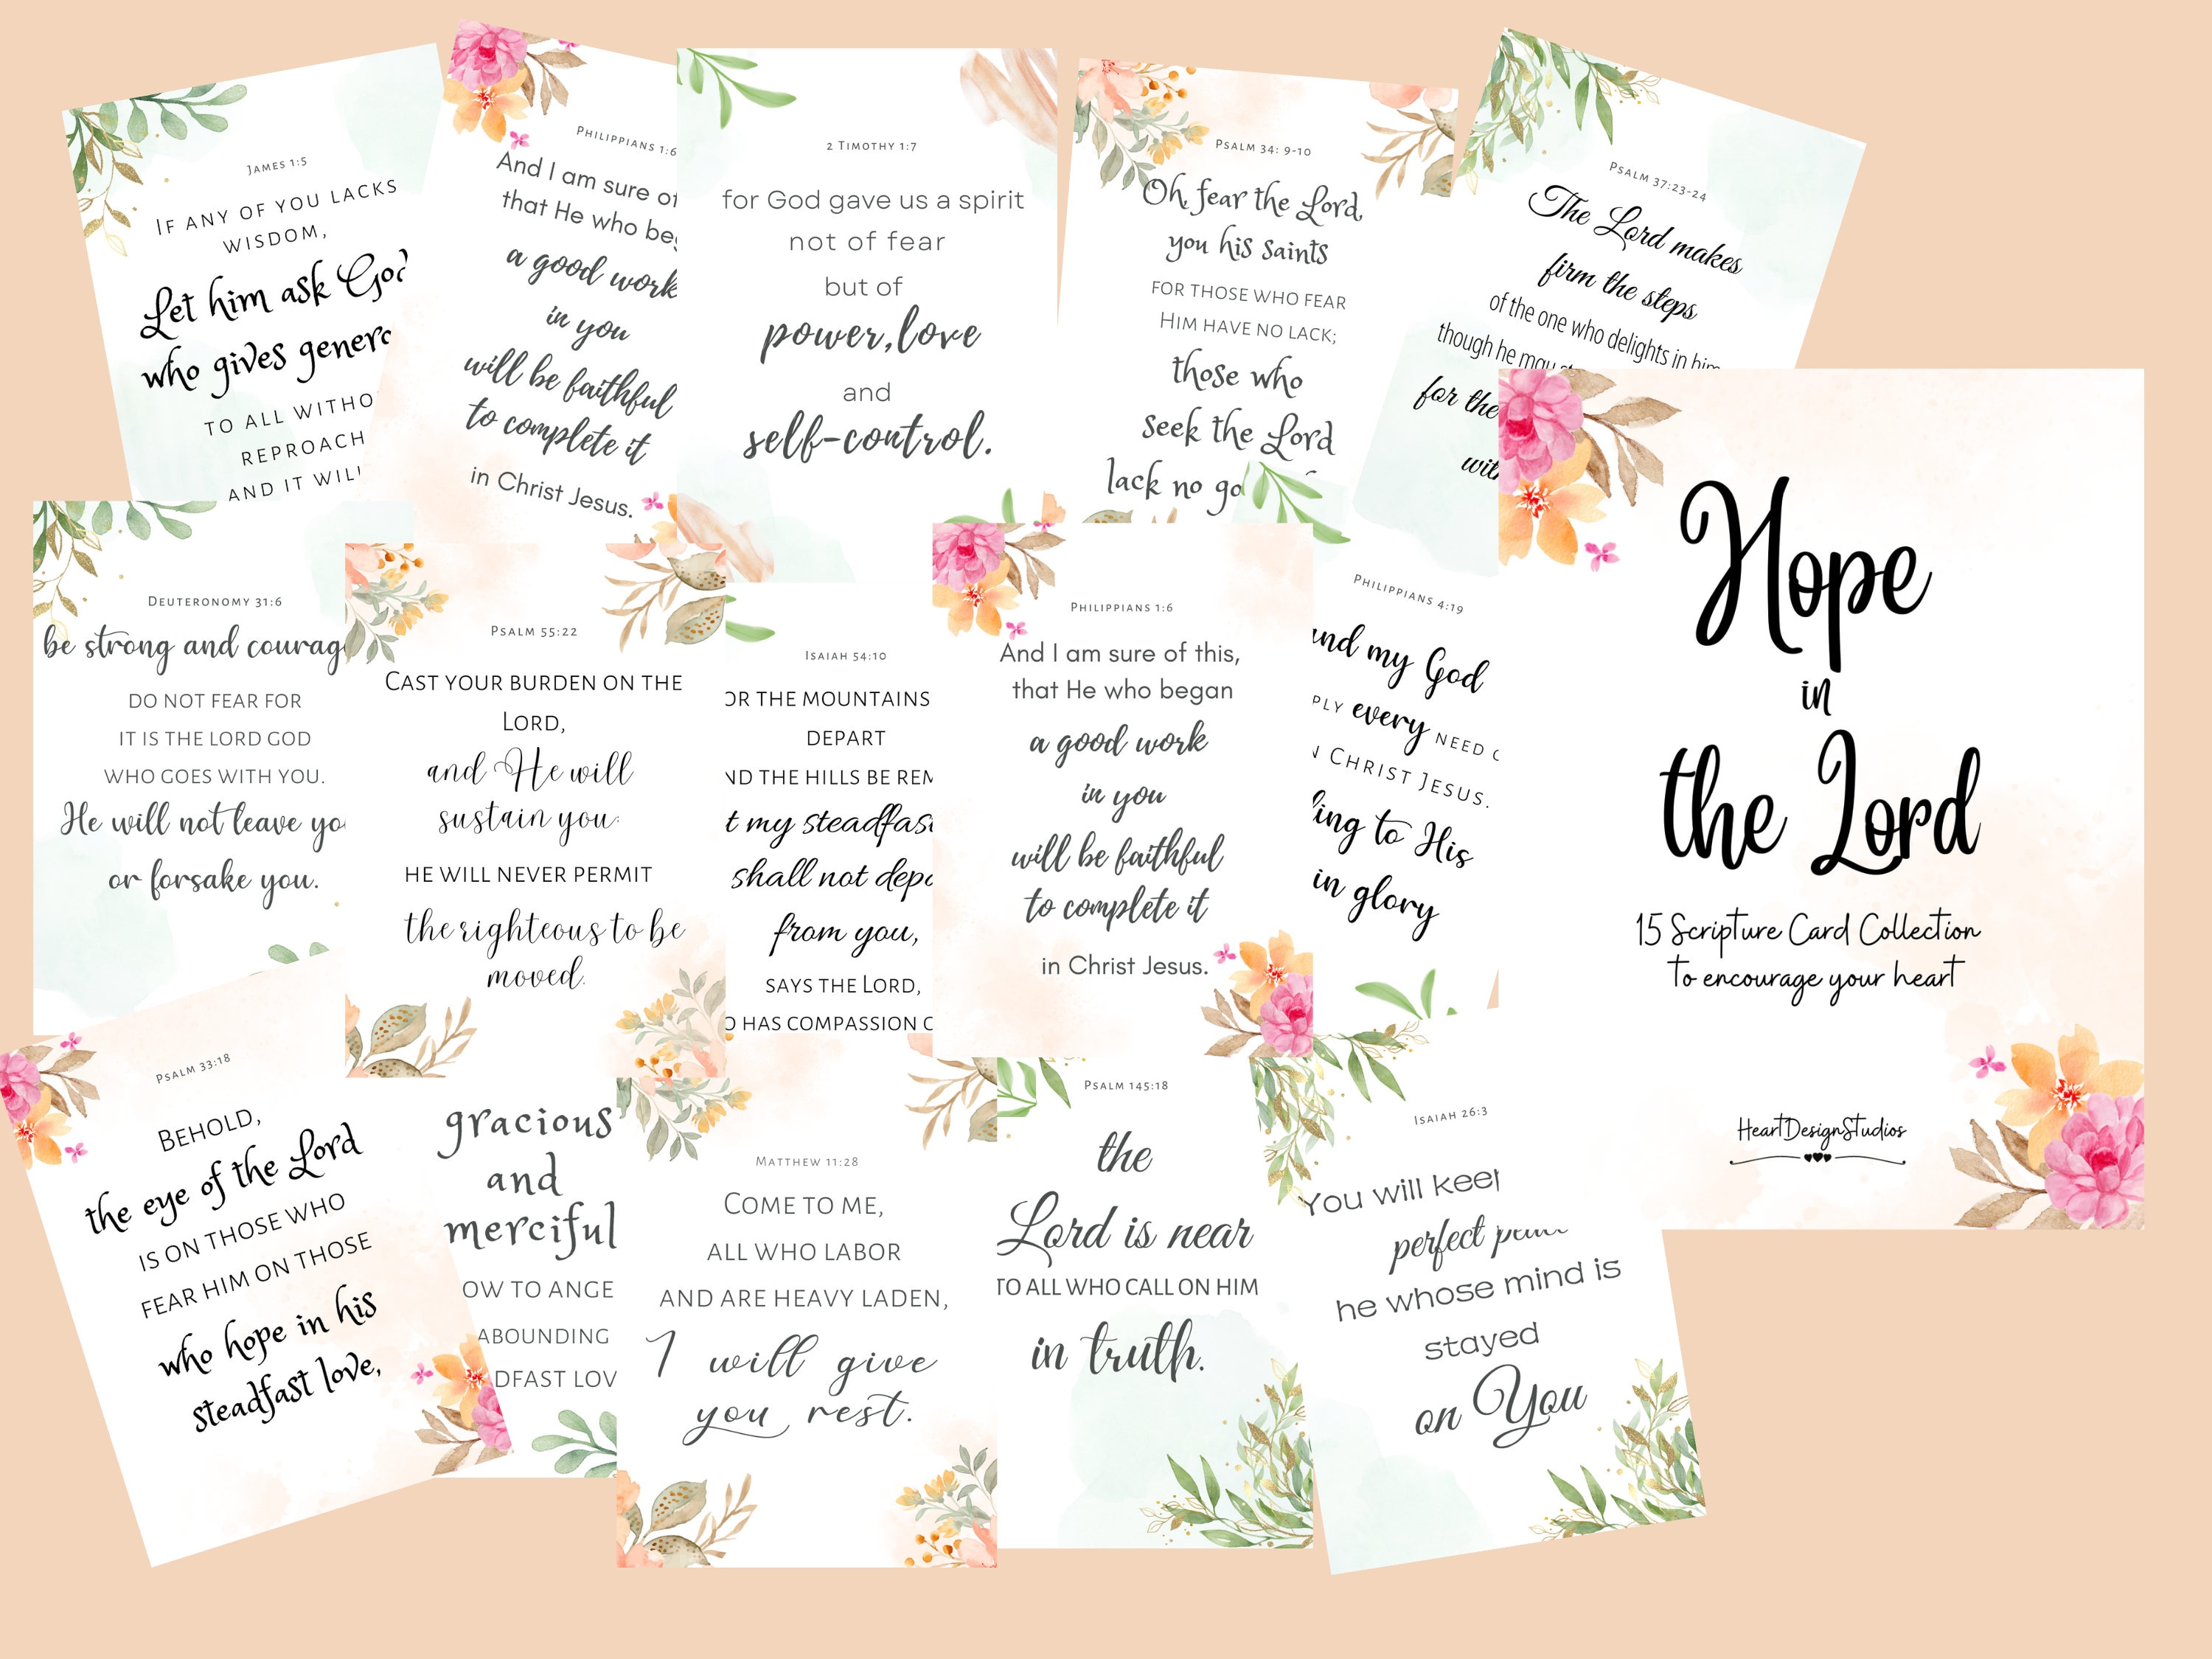 James 1:5
If any of you lacks
wisdom,
Let him ask God
who gives
to all
reproach
and it
Philippians 1:6
And I am sure of
that He who
a good work
in you
will be faithful
to complete it
in Christ Jesus.
2 Timothy 1:7
for God gave us a spirit
not of fear
but of
power, love
and
self-control.
Psalm 34: 9-10
Oh, fear the Lord,
you his saints
for those who fear
Him have no lack;
those who
seek the Lord
lack no
Psalm 37:23-24
The Lord makes
firm the steps
of the one who delights in him
though he may
for the
Hope
in
the Lord
15 Scripture Card Collection
to encourage your heart
HeartDesignStudios
Deuteronomy 31:6
be strong and
do not fear for
it is the Lord God
who goes with you.
He will not leave
or forsake you.
Psalm 55:22
Cast your burden on the
Lord,
and He will
sustain you:
he will never permit
the righteous to be
moved.
Isaiah 54:10
the mountains
depart
the hills be
my
shall not
from you,
says the Lord,
has compassion
Philippians 1:6
And I am sure of this,
that He who began
a good work
in you
will be faithful
to complete it
in Christ Jesus.
Philippians 4:19
my God
every need
Christ Jesus.
to His
in glory
Psalm 33:18
Behold,
the eye of the Lord
is on those who
fear him on those
who hope in his
steadfast love,
gracious
and
merciful
to
abounding
Matthew 11:28
Come to me,
all who labor
and are heavy laden,
I will give
you rest.
Psalm 145:18
the
Lord is near
to all who call on him
in truth.
Isaiah 26:3
You will keep
perfect
he whose mind is
stayed
on You